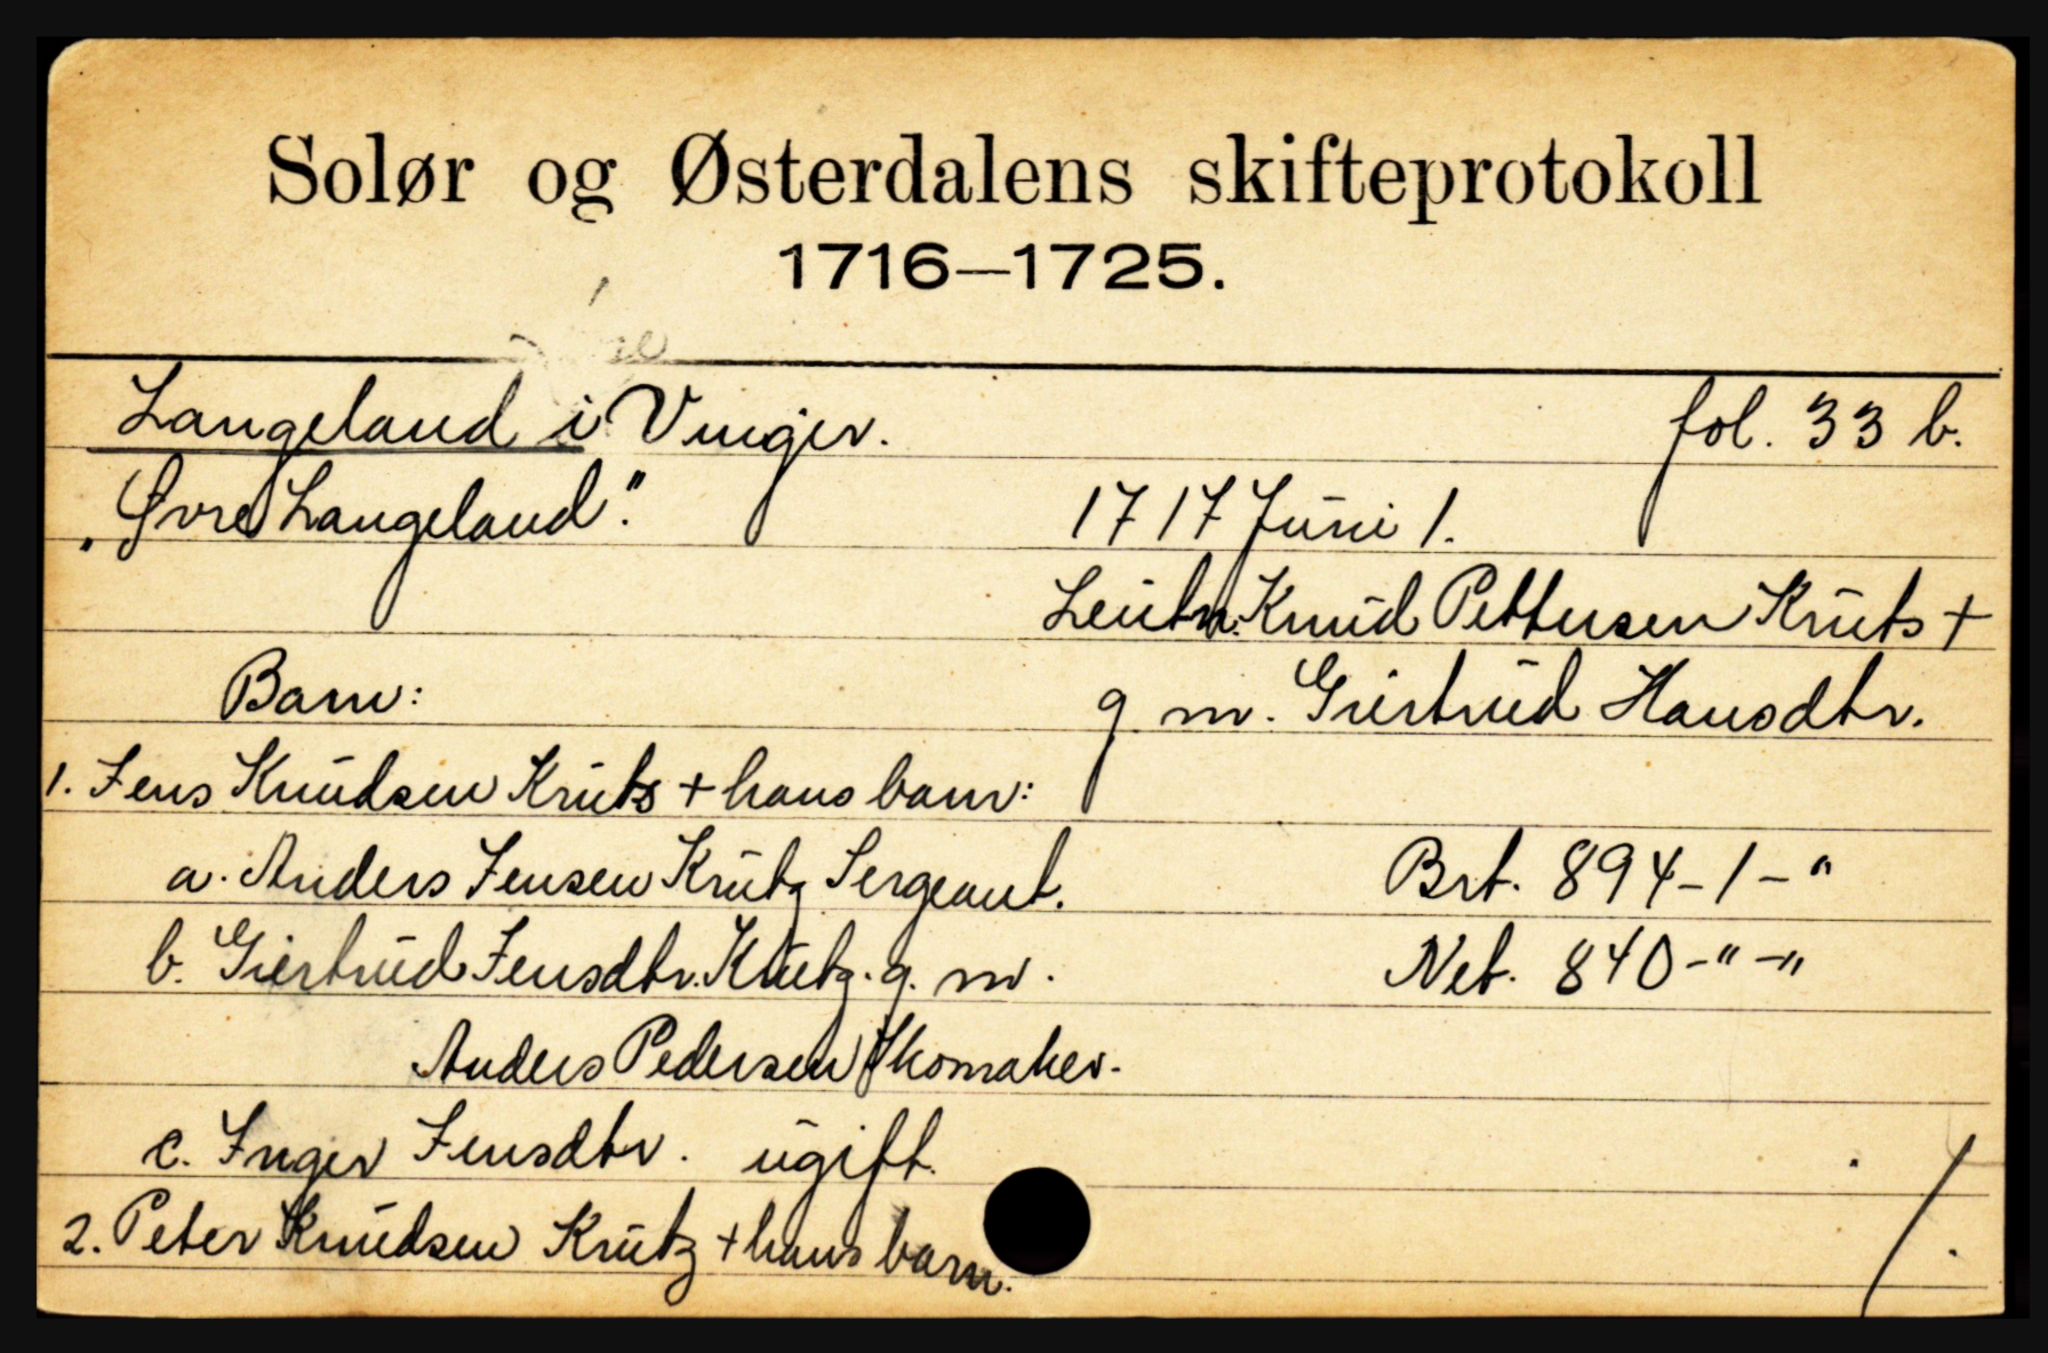 Solør og Østerdalens skifteprotokoll
1716—1725.
Langeland i Vinger. fol. 33 b.
"Øvre Langeland". 1717 Juni 1.
Leutn. Knud Pettersen Kruts +
Barn: g. m. Giertrud Hansdtr.
1. Jens Knudsen Kruts + hans barn:
a. Anders Jensen Krutz Sergeant. Brt. 894-1-"
b. Giertrud Jensdtr. Krutz. g. m. Net. 840-"-"
Anders Pedersen Skomaker.
c. Inger Jensdtr. ugift.
2. Peter Knudsen Krutz + hans barn. ./.